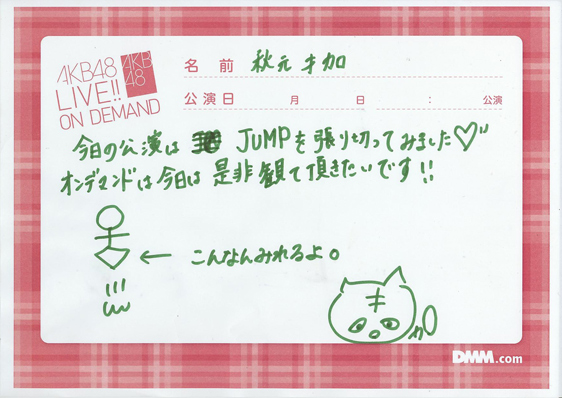 AKB48
LIVE!!
ON DEMAND
AKB
48
名 前 秋元 才加
公演日 月 日 : 公演
今日の公演は JUMPを張り切ってみました♡"
オンデマンドは今日は是非観て頂きたいです!!
← こんなんみれるよ。
DMM.com